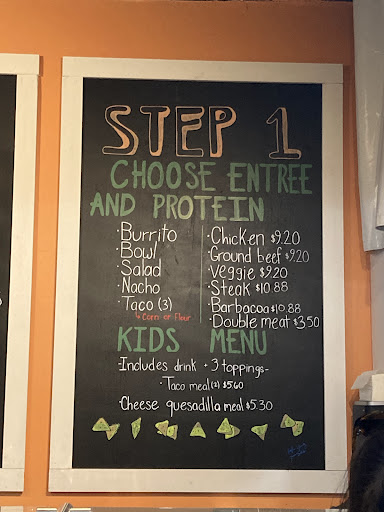 STEP 1
CHOOSE ENTREE
AND PROTEIN
·Burrito
·Bowl
·Salad
·Nacho
·Taco (3)
↳ Corn or Flour
·Chicken $9.20
·Ground beef $9.20
·Veggie $9.20
·Steak $10.88
·Barbacoa $10.88
·Double meat $3.50
KIDS MENU
-Includes drink + 3 toppings-
·Taco meal (2) $5.60
·Cheese quesadilla meal $5.30